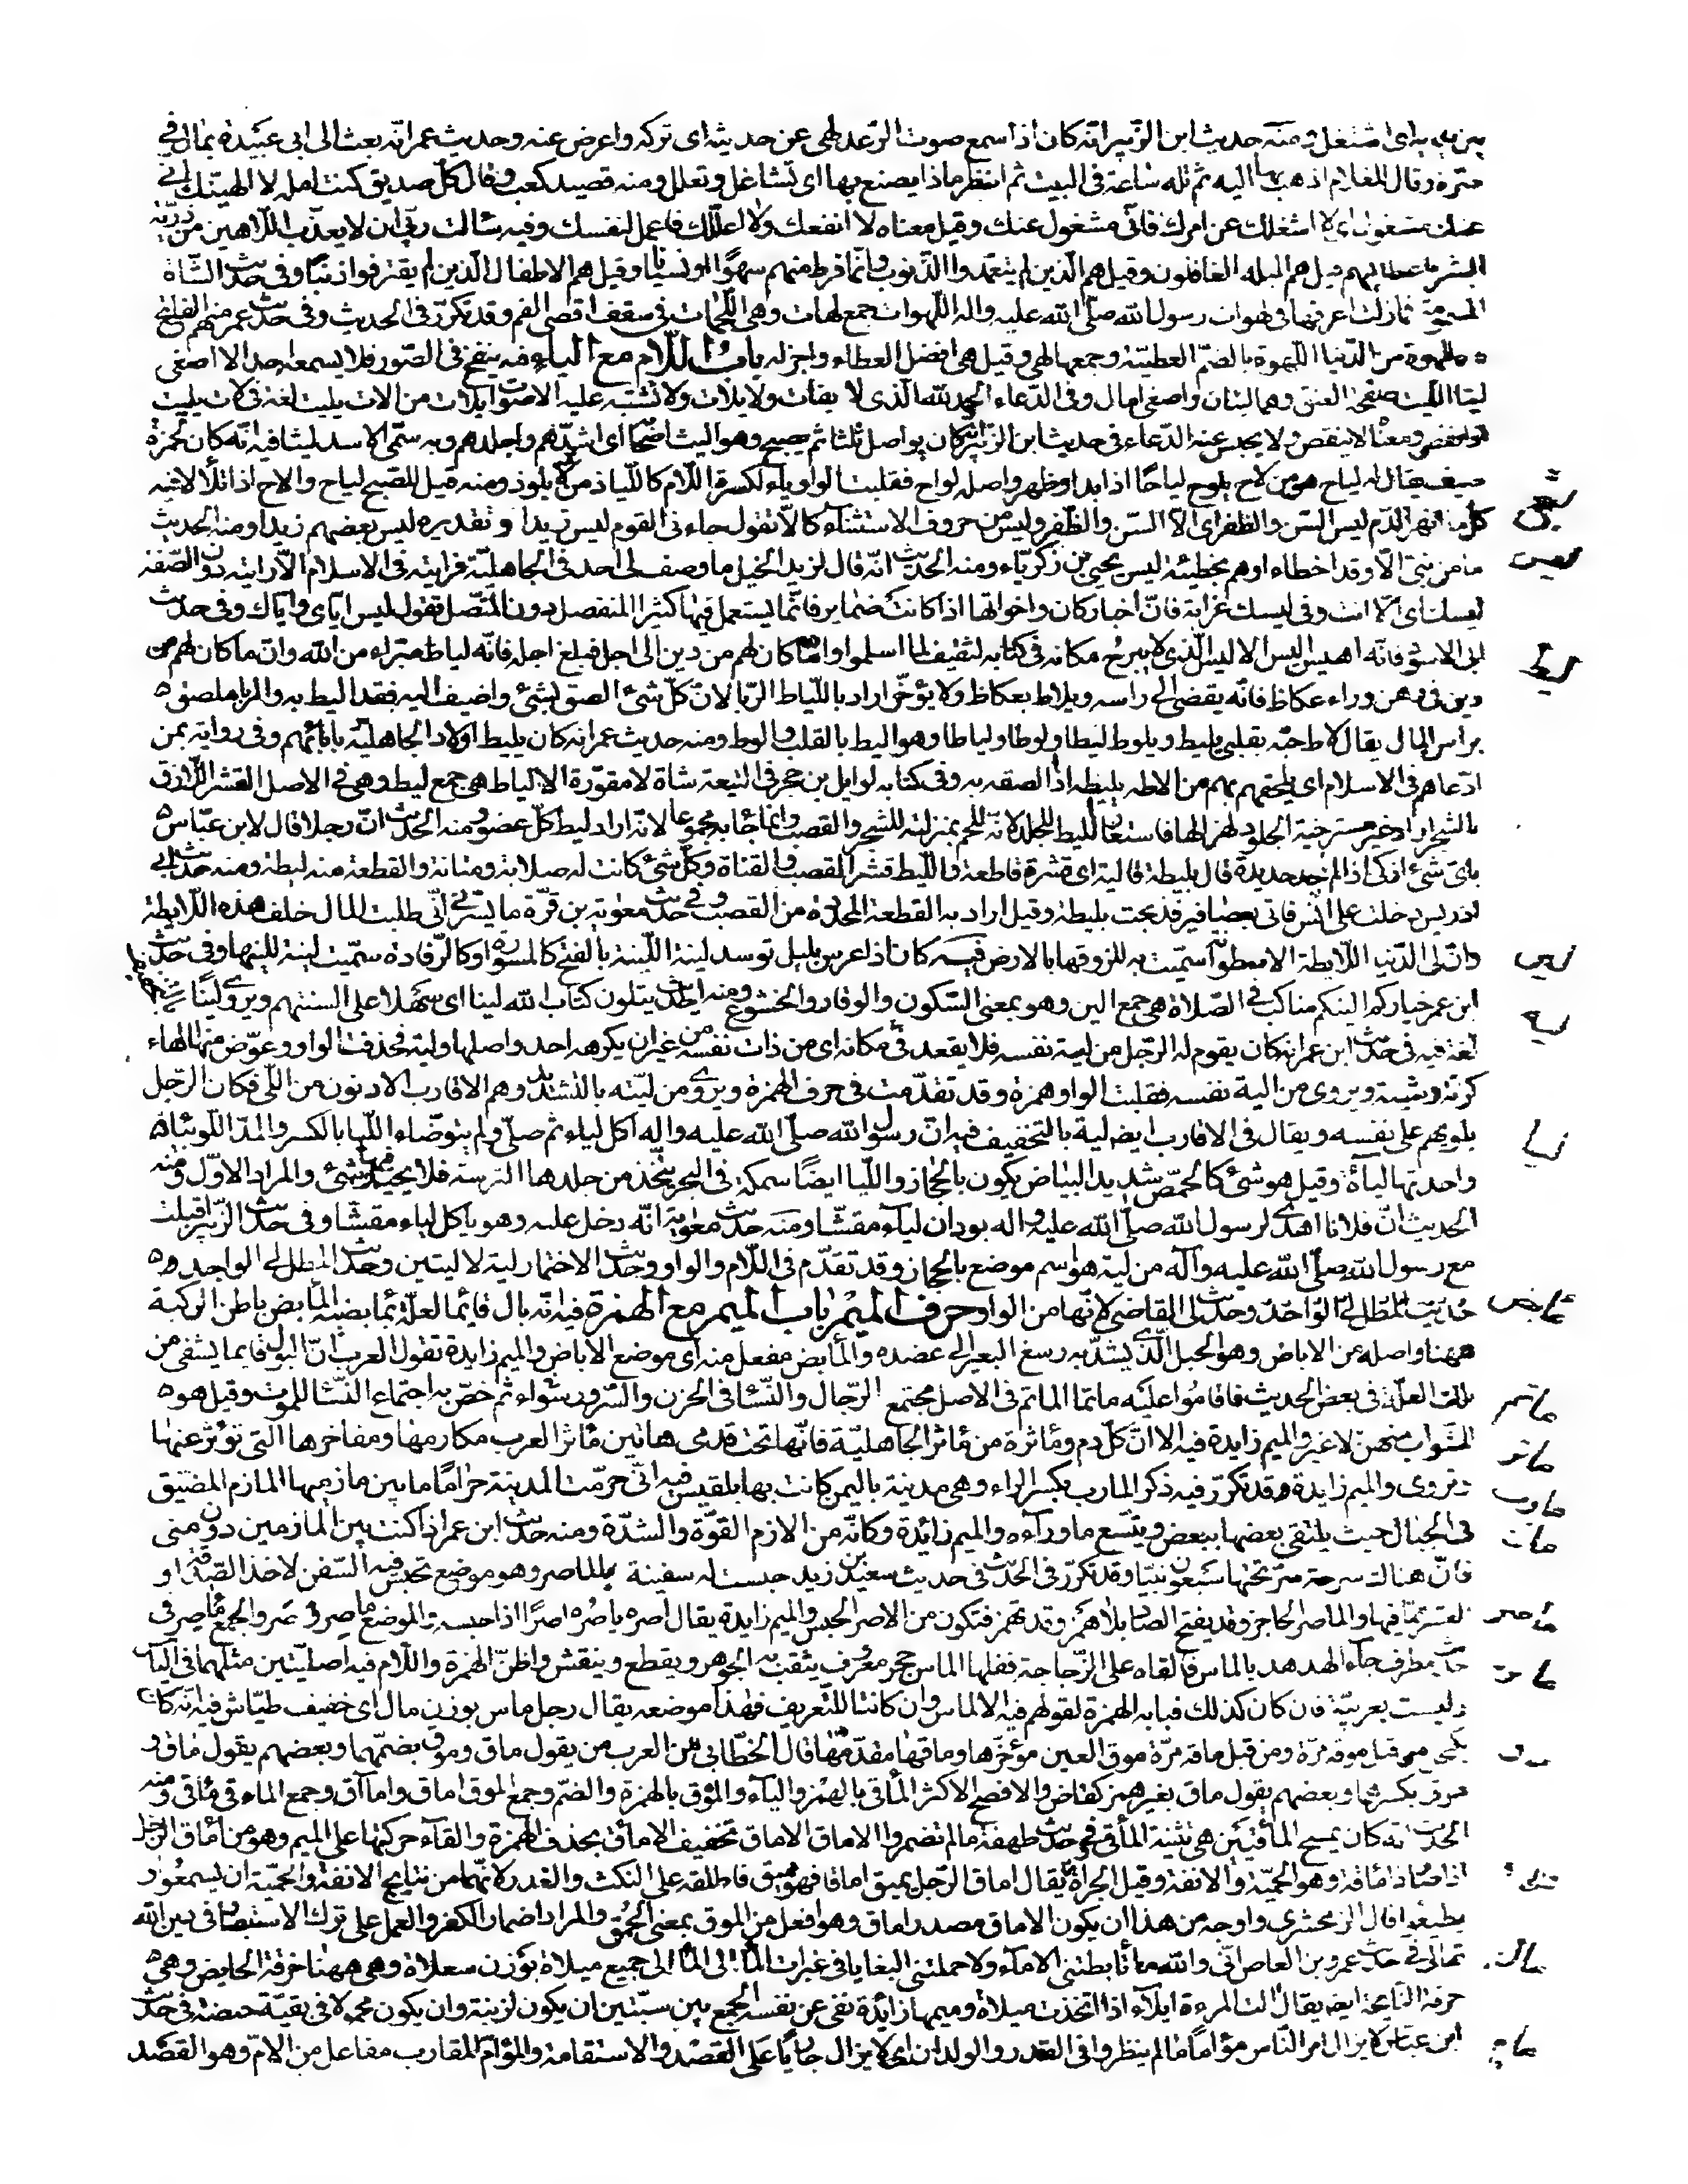 به اى اشتغل ومنه حديث ابن الزبير انه كان اذا سمع صوت الرعد لهى عن حديثه اى تركه واعرض عنه وحديث عمر انه بعث الى ابى عبيدة بمال فى
صرة وقال للغلام اذهب بها اليه ثم تله ساعة فى البيت ثم انظر ماذا يصنع بها اى تشاغل وتعلل ومنه قصيد كعب وقال كل صديق كنت امله لا الهينك انى
عنك مشغول اى لا اشغلك عن امرك فانى مشغول عنك وقيل معناه لا انفعك ولا اعللك فاعمل لنفسك وفيه سالت ربى ان لا يعذب اللاهين من ذرية
البشر فاعطانيهم قيل هم البله الغافلون وقيل هم الذين لم يتعمدوا الذنوب وانما فرط منهم سهوا او نسيانا وقيل هم الاطفال الذين لم يقترفوا ذنبا وفى حديث الشاة
المسمومة فما زلت اعرفها فى لهوات رسول الله صلى الله عليه واله اللهوات جمع لهات وهى اللحمات فى سقف اقصى الفم وقد تكرر فى الحديث وفى حديث عمر منهم الفاتح
فاه للهوة من الدنيا اللهوة بالضم العطية وجمعها لهى وقيل هى افضل العطاء واجزله باب اللام مع الياء فيه ينفخ فى الصور فلا يسمعه احد الا اصغى
ليتا الليت صفحة العنق وهما ليتان واصغى امال وفى الدعاء الحمد لله الذى لا يفات ولا يلات ولا تشتبه عليه الاصوات يلات من الات يليت لغة فى لات يليت
اذا نقص ومعناه لا ينقص ولا يحبس عنه الدعاء فى حديث ابن الزبير انه كان يواصل ثلثا ثم يصبح وهو اليث اصحابه اى اشدهم واجلدهم وبه سمى الاسد ليثا فيه انه كان لحمزة
سيف يقال له لياح هو من لاح يلوح لياحا اذا بدا وظهر واصله لواح فقلبت الواو ياء لكسرة اللام كاللياذ من لاذ يلوذ ومنه قيل للصبح لياح والاح اذا تلألأ فيه
كل ما انهر الدم ليس السن والظفر اى الا السن والظفر وليس من حروف الاستثناء كالا تقول جاءنى القوم ليس زيدا وتقديره ليس بعضهم زيدا ومنه الحديث
ما من نبى الا وقد اخطاء او هم بخطيئة ليس يحيى بن زكرياء ومنه الحديث انه قال لزيد الخيل ما وصف لى احد فى الجاهلية فرايته فى الاسلام الا رايته دون الصفة
ليسك اى الا انت وفى ليسك غرابة فان اخبار كان واخواتها اذا كانت ضماير فانما يستعمل فيها كثيرا المنفصل دون المتصل تقول ليس اياى واياك وفى حديث
ابى الاسود فانه اهيس اليس الاليس الذى لا يبرح مكانه فى كتابه لثقيف لما اسلموا وان ما كان لهم من دين الى اجل فبلغ اجله فانه لياط مبراء من الله وان ما كان لهم من
دين فى رهن وراء عكاظ فانه يقضى الى راسه ويلاط بعكاظ ولا يؤخر اراد باللياط الربا لان كل شئ الصق بشئ واضيف اليه فقد اليط به والربا ملصق
براس المال يقال لاط حبه بقلبى يليط ويلوط ليطا ولوطا ولياطا وهو اليط بالقلب والوط ومنه حديث عمر انه كان يليط اولاد الجاهلية بابائهم وفى رواية بمن
ادعاهم فى الاسلام اى يلحقهم بهم من الاطه يليطه اذا الصقه به وفى كتابه لوايل بن حجر فى التيعة شاة لا مقورة الالياط هى جمع ليط وهى فى الاصل القشر اللازق
بالشجر اراد غير مسترخية الجلود لهزالها فاستعار الليط للجلد لانه للحم بمنزلته للشجر والقصب وانما جاء به مجموعا لانه اراد ليط كل عضو ومنه الحديث ان رجلا قال لابن عباس
باى شئ اذكى اذا لم اجد حديدة قال بليطة فالية اى قشرة قاطعة والليط قشر القصب والقناة وكل شئ كانت له صلابة ومتانة والقطعة منه ليطة ومنه حديث ابى
ادريس دخلت على انس فاتى بعصافير فذبحت بليطة وقيل اراد به القطعة المحددة من القصب وفى حديث معوية بن قرة ما يسرنى انى طلبت المال خلف هذه اللايطة
وان لى الدنيا اللايطة الاسطوانة سميت به للزوقها بالارض فيه كان اذا عرس بليل توسد لينة اللينة بالفتح كالمسورة او كالرفادة سميت لينة للينها وفى حديث
ابن عمر خياركم الينكم مناكب فى الصلاة هى جمع الين وهو بمعنى السكون والوقار والخشوع ومنه الحديث يتلون كتاب الله لينا اى سهلا على السنتهم ويروى لينا
لغة فيه فى حديث ابن عمر انه كان يقوم له الرجل من لية نفسه فلا يقعد فى مكانه اى من ذات نفسه من غير ان يكرهه احد واصلها ولية فحذفت الواو وعوض منها الهاء
كزنة وشية ويروى من الية نفسه فقلبت الواو همزة وقد تقدمت فى حرف الهمزة ويروى من ليته بالتشديد وهم الاقارب الادنون من اللى فكان الرجل
يلويهم على نفسه ويقال فى الاقارب ايضا لية بالتخفيف فيه ان رسول الله صلى الله عليه واله اكل لياء ثم صلى ولم يتوضاء اللياء بالكسر والمد اللوبياء
واحدتها لياءة وقيل هو شئ كالحمص شديد البياض يكون بالحجاز واللياء ايضا سمكة فى البحر يتخذ من جلدها الترسة فلا يحيك فيها شئ والمراد الاول ومنه
الحديث ان فلانا اهدى لرسول الله صلى الله عليه واله بودان لياء مقشا ومنه حديث معوية انه دخل عليه وهو ياكل لياء مقشا وفى حديث الزبير اقبلت
مع رسول الله صلى الله عليه وآله من لية هو اسم موضع بالحجاز وقد تقدم فى اللام والواو وحديث الاختمار لية لا ليتين وحديث المطل لى الواجد
حديث المطل لى الواجد وحديث لى القاضى لانها من الواو حرف الميم باب الميم مع الهمزة فيه انه بال قائما لعلة بمابضيه المأبض باطن الركبة
ههنا واصله من الاباض وهو الحبل الذى يشد به رسغ البعير الى عضده والمأبض مفعل منه اى موضع الاباض والميم زايدة تقول العرب ان البول قايما يشفى من
تلك العلة فى بعض الحديث فاقاموا عليه ماتما الماتم فى الاصل مجتمع الرجال والنساء فى الحزن والسرور سواء ثم خص به اجتماع النساء للموت وقيل هو
الشواب منهن لا غير والميم زايدة فيه الا ان كل دم ومأثرة من مآثر الجاهلية فانها تحت قدمى هاتين مآثر العرب مكارمها ومفاخرها التى تؤثر عنها
وتروى والميم زايدة وقد تكرر فيه ذكر المارب بكسر الراء وهى مدينة باليمن كانت بها بلقيس فيه انى حرمت المدينة حراما ما بين مازميها المازم المضيق
فى الجبال حيث يلتقى بعضها ببعض ويتسع ماوراءه والميم زائدة وكانه من الازم القوة والشدة ومنه حديث ابن عمر اذا كنت بين المازمين دون منى
فان هنالك سرحة سر تحتها سبعون نبيا وقد تكرر فى الحديث فى حديث سعيد بن زيد حبست له سفينة بالماصر وهو موضع تحبس فيه السفن لاخذ الصدقة او
العشر مما فيها والماصر الحاجز وقد يفتح الصاد بلا همز وقد تهمز فتكون من الاصر الحبس والميم زايدة يقال اصره ياصره اصرا اذا حبسه والموضع ماصر والجمع مآصر فى
حديث مطرف جاء الهدهد بالماس فالقاه على الزجاجة ففلها الماس حجر معروف يثقب به الجوهر ويقطع وينقش واظن الهمزة واللام فيه اصليتين مثلهما فى الياس
وليست بعربية فان كان كذلك فبابه الهمزة لقولهم فيه الالماس وان كانتا للتعريف فهذا موضعه يقال رجل ماس بوزن مال اى خفيف طياش فيه انه كان
يكتحل من قبل موقه مرة ومن قبل ماقه مرة موق العين مؤخرها وماقها مقدمها قال الخطابى من العرب من يقول ماق وموق بضمهما وبعضهم يقول ماق و
موق بكسرهما وبعضهم يقول ماق بغير همز كقاض والافصح الاكثر المأقى بالهمز والياء والمؤق بالهمزة والضم وجمع الموق اماق واماآق وجمع الماءقى مآقى ومنه
الحديث انه كان يمسح المأقيين هى تثنية المأقى وفى حديث طهفة ما لم تضمروا الاماق الاماق تخفيف الاماق بحذف الهمزة والقاء حركتها على الميم وهو من امأق الرجل
اذا صار ذا مأقة وهو الحمية والانفة وقيل الجراة يقال اماق الرجل يميق اماقا فهو مميق فاطلقه على النكث والغدر لانهما من نتايج الانفة والحمية ان يسمعوا و
يطيعوا قال الزمخشرى واوجه من هذا ان يكون الاماق مصدر اماق وهو افعل من الموق بمعنى الحمق والمراد اضمار الكفر والعمل على ترك الاستبصار فى دين الله
تعالى فى حديث عمرو بن العاص انى والله ما تأبطتنى الاماء ولا حملتنى البغايا فى غبرات المآلى المآلى جميع ميلاة بوزن سعلاة وهى ههنا خرقة الحايض وهى
خرقة النايحة ايضا يقال الت المرءة ايلاء اذا اتخذت ميلاة وميمها زايدة نفى عن نفسه الجمع بين سبتين ان يكون لزنية وان يكون محمولا فى بقية حيضة فى حديث
ابن عباس لا يزال امر الناس مؤاما ما لم ينظروا فى القدر والولدان اى لا يزال جاريا على القصد والاستقامة والمؤام المقارب مفاعل من الام وهو القصد
ليس
ليط
لين
ليه
ليا
مأبض
ماتم
ماثر
مارب
ماصر